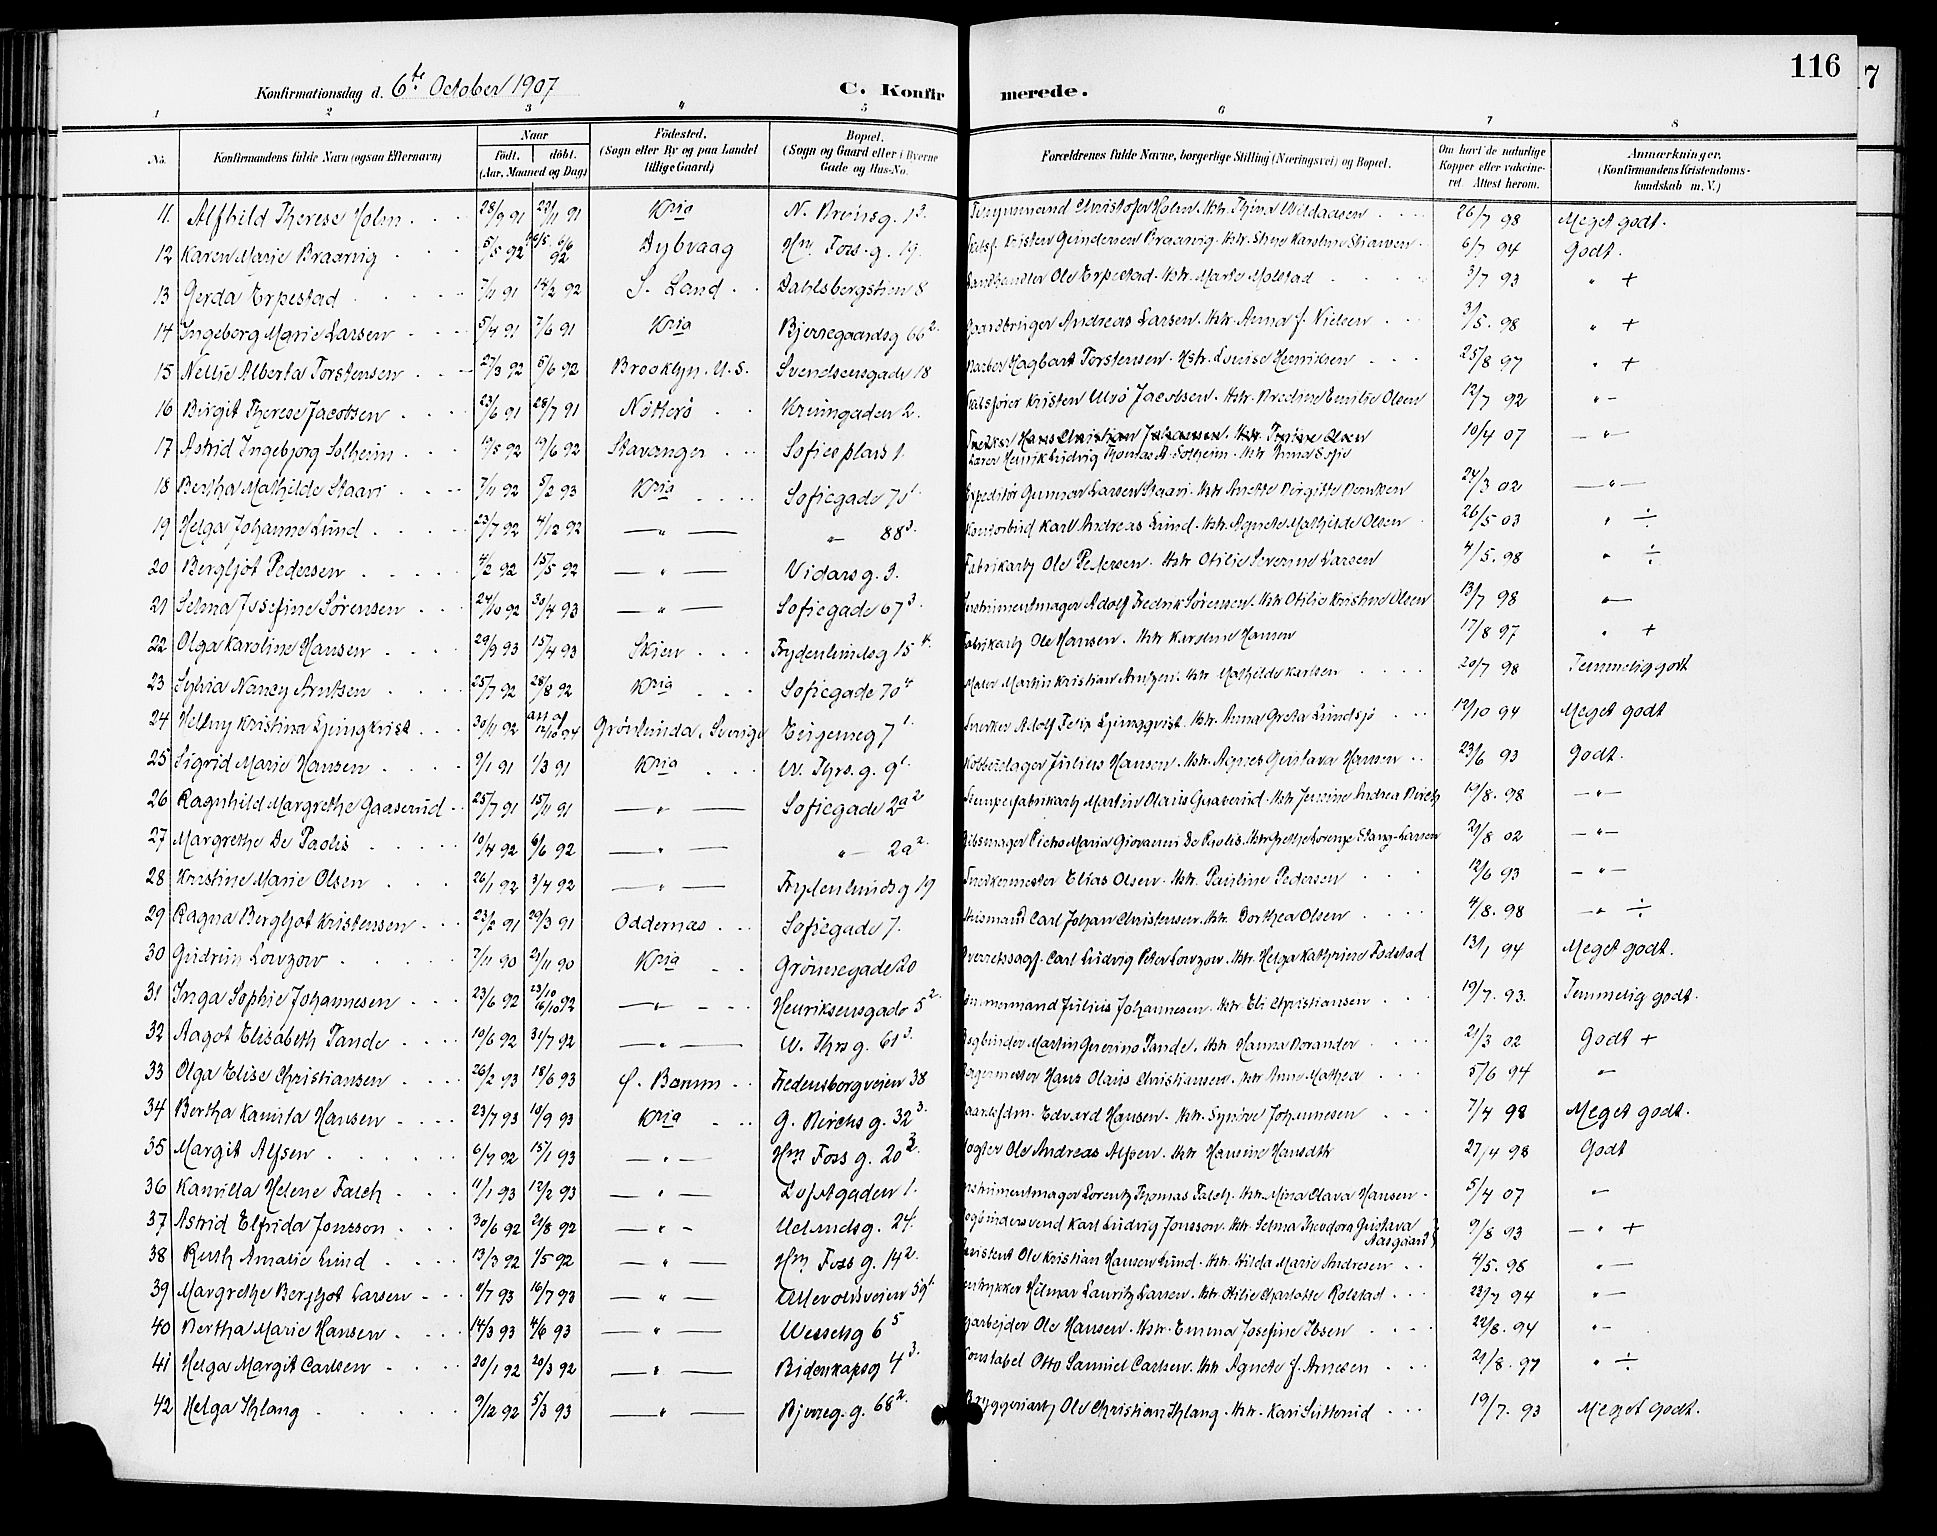 116
7
Konfirmationsdag d. 6te October 1907 C. Konfirmerede.
1 2 3 4 5 6 7 8
No. Konfirmandens fulde Navn (ogsaa Efternavn) Naar født. døbt. (Aar, Maaned og Dag) Fødested. (Sogn eller By og paa Landet tillige Gaard) Bopæl. (Sogn og Gaard eller i Byerne Gade og Hus-No. Forældrenes fulde Navne, borgerlige Stilling (Næringsvei) og Bopæl. Om havt de naturlige Kopper eller vakcineret. Attest herom. Anmærkninger. (Konfirmandens Kristendomskundskab m. V.)
11. Alfhild Therese Holm 28/9 91 22/11 91 Kria N. Brunsg. 1 3. Christofer Holm. Hstr. 26/7 98 Meget godt.
12 Karen Marie Braarvig 5/5 92 6/6 92 Dybvaag Hm. Foss. g. 19. Kristen Braarvig. Hstr. Karoline 6/7 94 Godt.
13 Gerda Erpestad 7/11 91 14/2 92 S. Land Dahlsbergstien 8 Landhandler Ole Erpestad. Hstr. Marte Molstad 3/7 93 " +
14 Ingeborg Marie Larsen 5/4 91 7/6 91 Kria Bjerregaardsg 66 2. Gaardbruger Andreas Larsen. Hstr. Anna J. Nielsen 3/5. 98 " +
15 Nellie Alberta Torstensen 27/3 92 5/6 92 Brooklyn. U.S. Svendsensgade 18 Barber Hagbart Torstensen. Hstr. Louise Henriksen 25/8 97 " +
16 Birgit Therese Jacobsen 23/6 91 28/7 91 Nötterö Krumgaden 2. Kristen Ulrö Jacobsen. Hstr. Bredine Emilie Olsen 12/7 92 " -
17 Astrid Ingebjorg Solheim 19/5 92 19/6 92 Stavanger Sofies plads 1. Snekker Hans Christian Johansen. Hstr. Trine Olsen 10/4 07 - " -
Lærer Henrik Ludvig Thomas A. Solheim. Hstr. Anna
18 Bertha Mathilde Staari 7/11 92 5/2 93 Kria Sofiegade 70 1. Expeditör Gunnar Larsen Staari. Hstr. Anette Birgitte Berntsen 24/3 02 - " -
19 Helga Johanne Lund 23/7 92 4/12 92 - " - " 88 3. Kontorbud Karl Andreas Lund. Hstr. Agnete Mathilde Olsen 26/5 03 " ÷
20 Bergljot Pedersen 4/2 92 15/5 92 - " - Vidarsg. 3. Fabrikarb Ole Pedersen. Hstr Otilie Severine Larsen 4/5. 98 " ÷
21 Selma Josefine Sørensen 24/10 92 30/4 93 - " - Sofiegade 67 3. Instrumentmager Adolf Fredrik Sørensen. Hstr Otilie Kristine Olsen 13/7 98 " -
22 Olga Karoline Hansen 29/9 93 15/4 93 Skien Frydenlundsg 15 4. Fabrikarb Ole Hansen. Hstr Karoline Hansen 17/8 97 " +
23 Sylvia Nancy Arntsen 25/7 92 28/8 92 Kria Sofiegade 70 4 Maler Martin Kristian Arntzen. Hstr Mathilde Karlsen 20/7 98 Temmelig godt
24 Kristina Ljungkvist 30/11 92 att af 12/10 94 Grönlunda, Sverige Eugeneg 7 1. Snekker Adolf Felix Ljungqvist. Hstr. Anna Greta Lundsjö 12/10 94 Meget godt
25 Sigrid Marie Hansen 9/1 91 1/3 91 Kria W. Thrs. g. 9 1. Julius Hansen. Hstr. Agnes Gustava Hansen 23/6 93 Godt.
26 Ragnhild Margrethe Gaaserud 25/7 91 15/11 91 - " - Sofiegade 2a 2 Stempelfabrikarb Martin Olaus Gaaserud. Hstr Jensine Andrea Birch 19/8. 98 - " -
27 Margrethe De Paolis 10/4 92 6/6 92 - " - " - 2a 2. Gibsmager Pietro Maria Giovanni De Paolis. Hstr Grethe Lorenze Stang-Larsen 21/8 02 - " -
28 Kristine Marie Olsen 26/1 92 3/4 92 - " - Frydenlunds g 19 Snekkermester Elias Olsen. Hstr. Pauline Pedersen 12/6 93 - " -
29 Ragna Bergljot Kristensen 23/2 91 29/3 91 Oddernæs Sofiegade 7. Carl Johan Christensen. Hstr. Dorthea Olsen 4/8. 98 - " ÷
30 Gudrun Lowzow 7/11 90 21/11 90 Kria Grönnegade 20 Overretssagf. Carl Ludvig Peter Lowzow. Hstr. Helga Kathrine Fodstad 13/1 94 Meget godt.
31 Inga Sophie Johannesen 23/6 92 23/10 16/10 92 - " - Henriksensgade 5 2. Tömmermand Julius Johannesen. Hstr. Eli Christiansen 19/7. 93. Temmelig godt.
32 Aagot Elisabeth Tande 10/6 92 31/7 92 - " - W. Thrs g. 61 3. Bogbinder Martin Tande. Hstr. Hanna Norander 21/3 02 Godt +
33 Olga Elise Christiansen 26/2 93 18/6 93 Ö. Bærum Fredensborgveien 38 Bagermester Hans Olaus Christiansen. Hstr Anne Mathea 5/6 94 " -
34 Bertha Kamilla Hansen 23/7 93 10/9 93 Kria G. Birchs g. 32 3. Edvard Hansen. Hstr. Synöve Johannesen 7/4 98 Meget godt.
35 Margit Alfsen 6/7 92 15/1 93 - " - Hm Foss g. 20 3. Ole Andreas Alfsen. Hstr Hansine 27/4 98 Godt
36 Kamilla Helene Falch 11/1 93 12/2 93 - " - Loftgaden 1. Instrumentmager Lorentz Thomas Falch. Hstr. Mina Clava Hansen 5/4 07 " -
37 Astrid Elfrida Jonsson 30/6 92 21/8 92 - " - Uelandsg. 24 1. Bogbindersvend Karl Ludvig Jonsson. Hstr. Selma Theodora Gustava Aasgaard 9/8 93 - " +
38 Ruth Amalie Lund 13/3 92 1/5 92 - " - Hm Foss g. 14 2. Ole Kristian Hansen Lund. Hstr Hilda Marie Andresen 4/5. 98 " -
39 Margrethe Bergljot Larsen 4/7 93 16/7 93 - " - Ullevoldsveien 59 1. Hilmar Lauritz Larsen. Hstr. Otilie Charlotte Rolstad 23/7 94 " -
40 Bertha Marie Hansen 14/3 93 4/6 93 - " - Wesselsg 6 5 Ole Hansen. Hstr. Emma Josefine Ibsen 22/8. 94 " -
41 Helga Margit Carlsen 20/1 92 20/3 92 - " - Bidenkapsg 4 3. Konstabel Otto Samuel Carlsen. Hstr Agnete J. Arnesen 21/8. 97 " ÷
42 Helga Thlang 9/12 92 5/3 93 - " - Bjerreg. g. 68 2. Bryggeriarb Ole Christian Thlang. Hstr. Kari Sutterud 19/7. 93 Meget Godt.